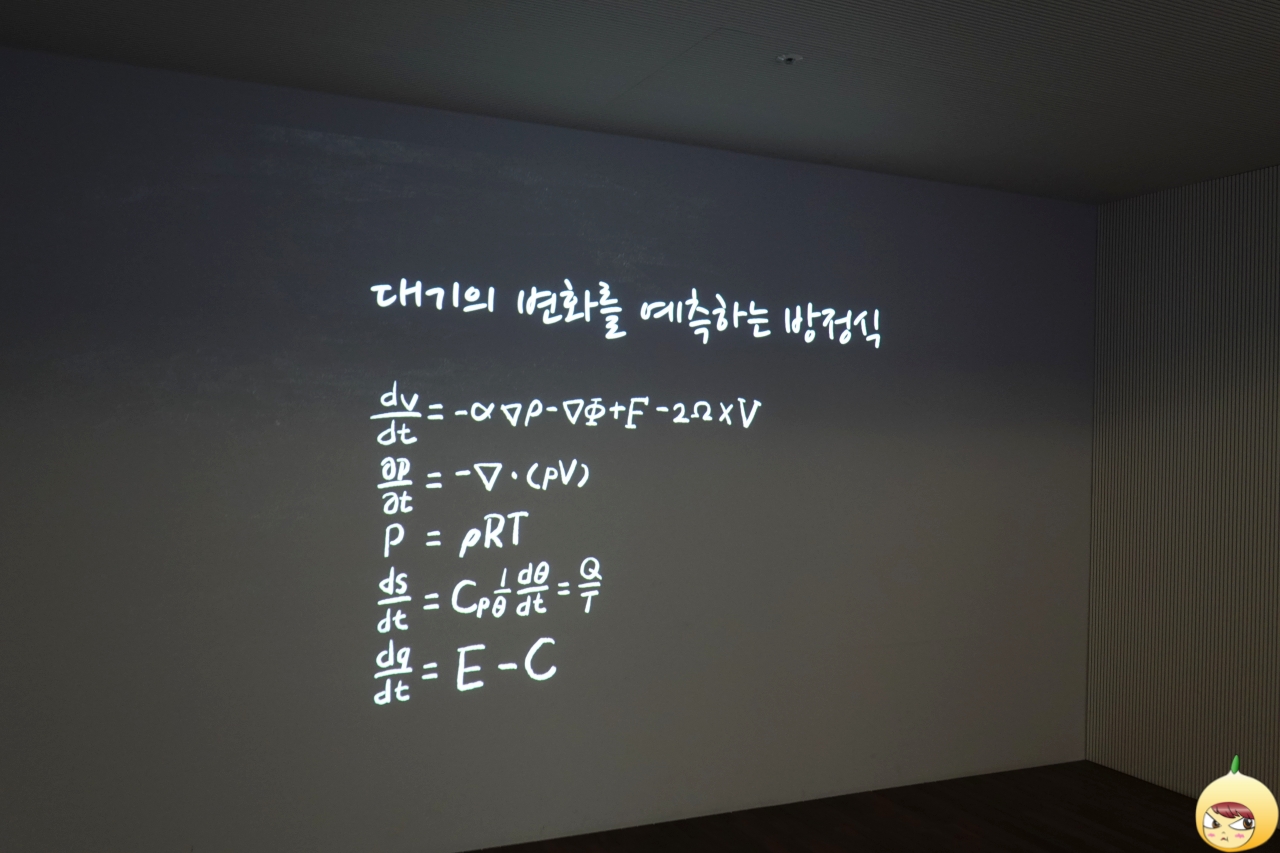 대기의 변화를 예측하는 방정식
dv/dt = -α∇p-∇Φ+F-2Ω×V
∂p/∂t = -∇·(ρV)
P = ρRT
ds/dt = Cp 1/θ dθ/dt = Q/T
dq/dt = E-C